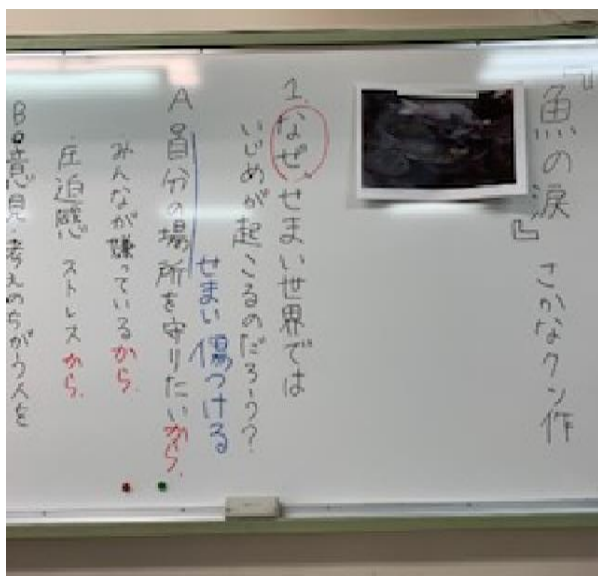 『魚の涙』 さかなクン作
1. なぜ、せまい世界では
いじめが起こるのだろう?
せまい 傷つける
A 自分の場所を守りたいから。
みんなが嫌っているから。
圧迫感 ストレスから。
B 意見・考えのちがう人を